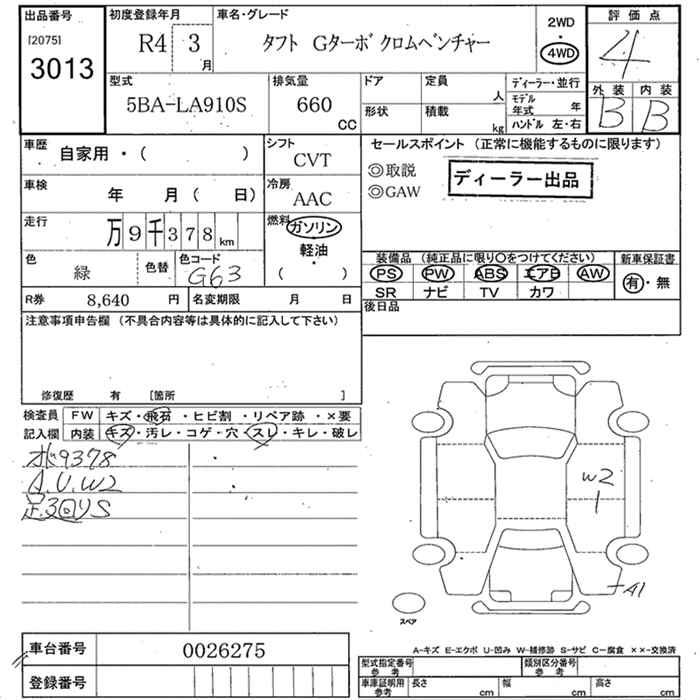 出品番号 初度登録年月 車名・グレード 2WD 評価点
[2075] R4 3月 タフト Gターボ クロムベンチャー 4WD 4
3013
型式 排気量 ドア 定員 人 ディーラー・並行 外装 内装
5BA-LA910S 660 CC 形状 積載 kg モデル年式 年 B B
ハンドル 左・右
車歴 自家用・( ) シフト CVT セールスポイント (正常に機能するものに限ります)
◎取説 ディーラー出品
◎GAW
車検 年 月 ( 日) 冷房 AAC
走行 万9千378km 燃料 ガソリン
軽油・
( )
色 緑 色替 色コード G63
装備品 (純正品に限り○をつけてください) 新車保証書
PS PW ABS エアB AW 有・無
SR ナビ TV カワ
R券 8,640 円 名変期限 月 日 後日品
注意事項申告欄 (不具合内容等は具体的に記入して下さい)
修復歴 有 [箇所 ]
検査員 FW キズ・飛石・ヒビ割・リペア跡・×要
記入欄 内装 キズ・汚レ・コゲ・穴・スレ・キレ・破レ
水9378
A.U.W2
足回りS
W2
A1
スペア
車台番号 0026275
登録番号
A-キズ E-エクボ U-凹み W-補修跡 S-サビ C-腐食 ××-交換済
型式指定番号 参考 類別区分番号 参考
車庫証明用 参考 長さ cm 幅 cm 高さ cm